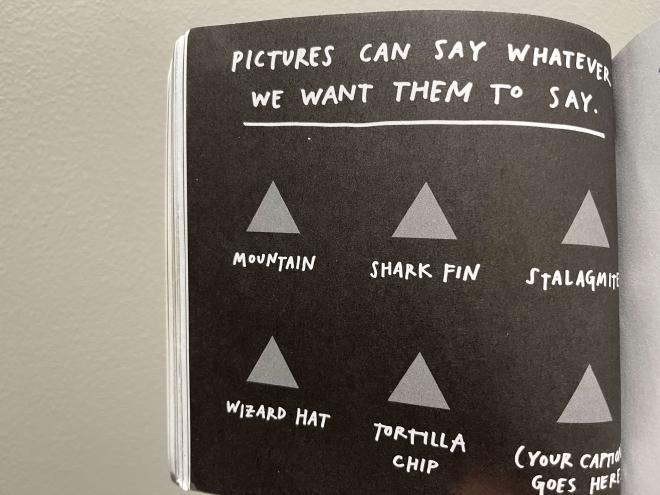 PICTURES CAN SAY WHATEVER
WE WANT THEM TO SAY.
MOUNTAIN
SHARK FIN
STALAGMITE
WIZARD HAT
TORTILLA
CHIP
(YOUR CAPTION
GOES HERE